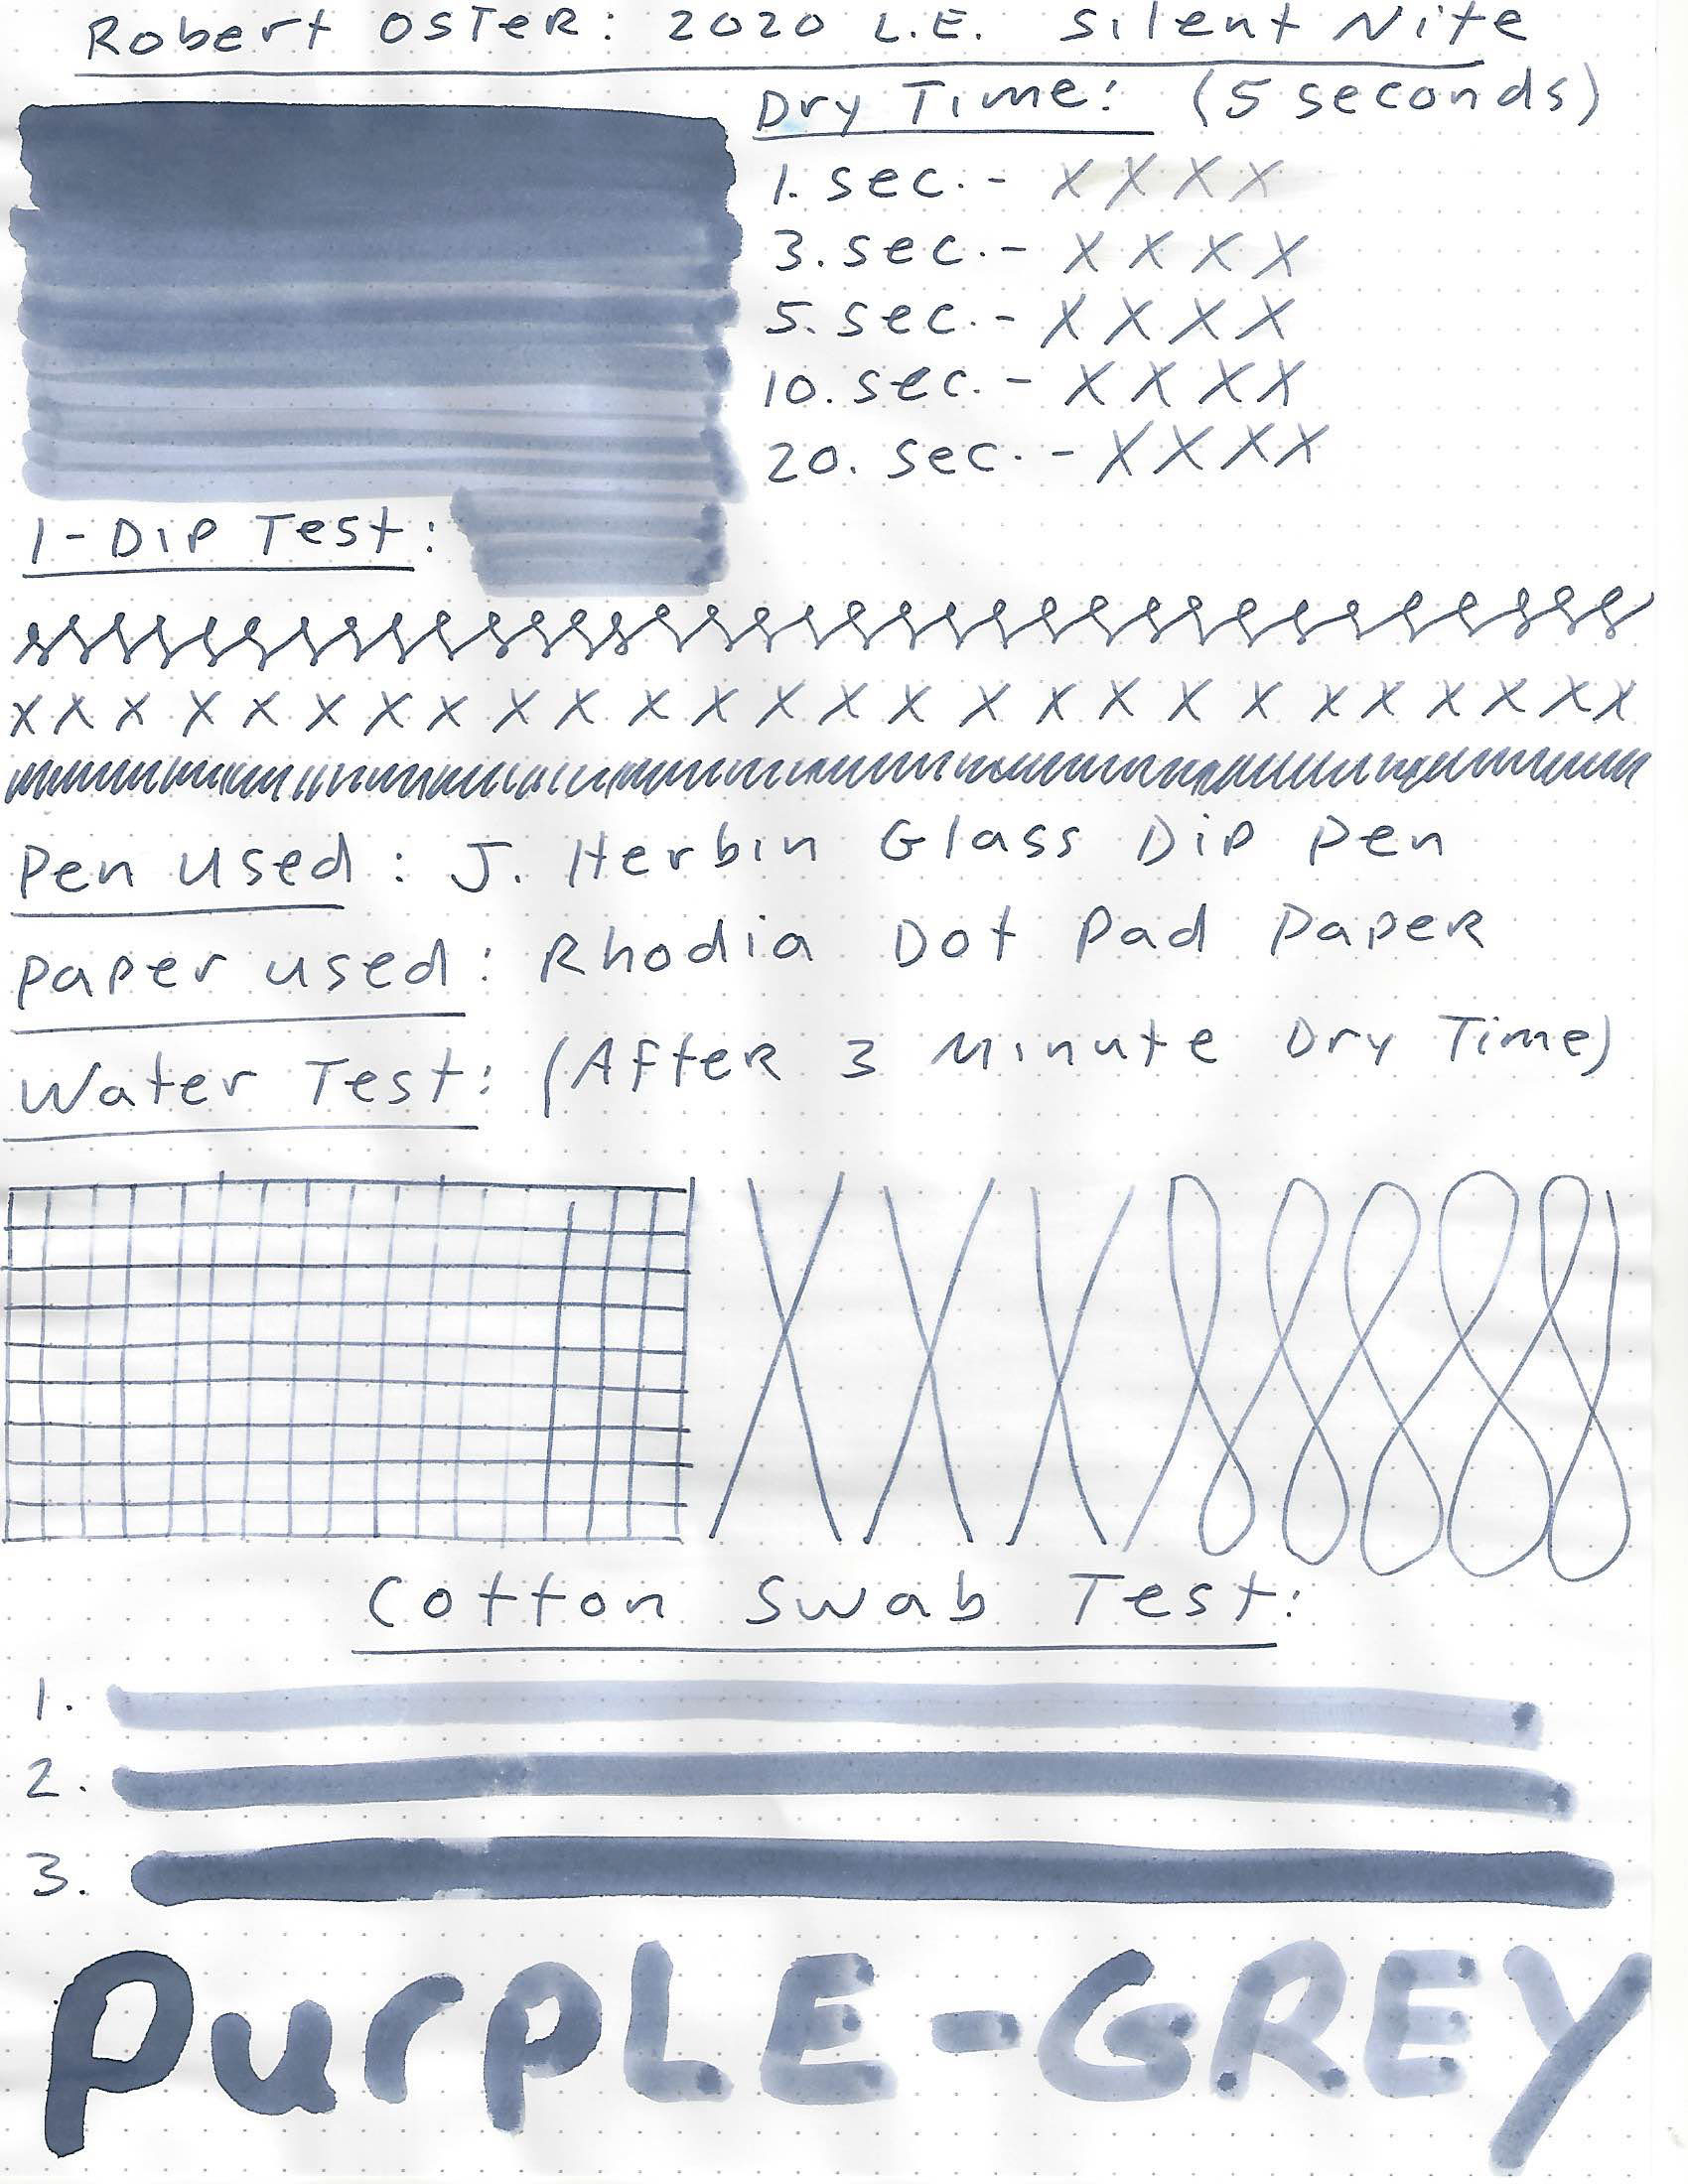 Robert OSTER: 2020 L.E. Silent Nite
Dry Time: (5 seconds)
1. sec. - X X X X
3. sec. - X X X X
5. sec. - X X X X
10. sec. - X X X X
20. sec. - X X X X
1-Dip Test:
X X X X X X X X X X X X X X X X X X X X X X X X X X
Pen Used: J. Herbin Glass Dip Pen
Paper used: Rhodia Dot Pad Paper
Water Test: (After 3 Minute Dry Time)
Cotton Swab Test:
1.
2.
3.
PurpLE-GREY